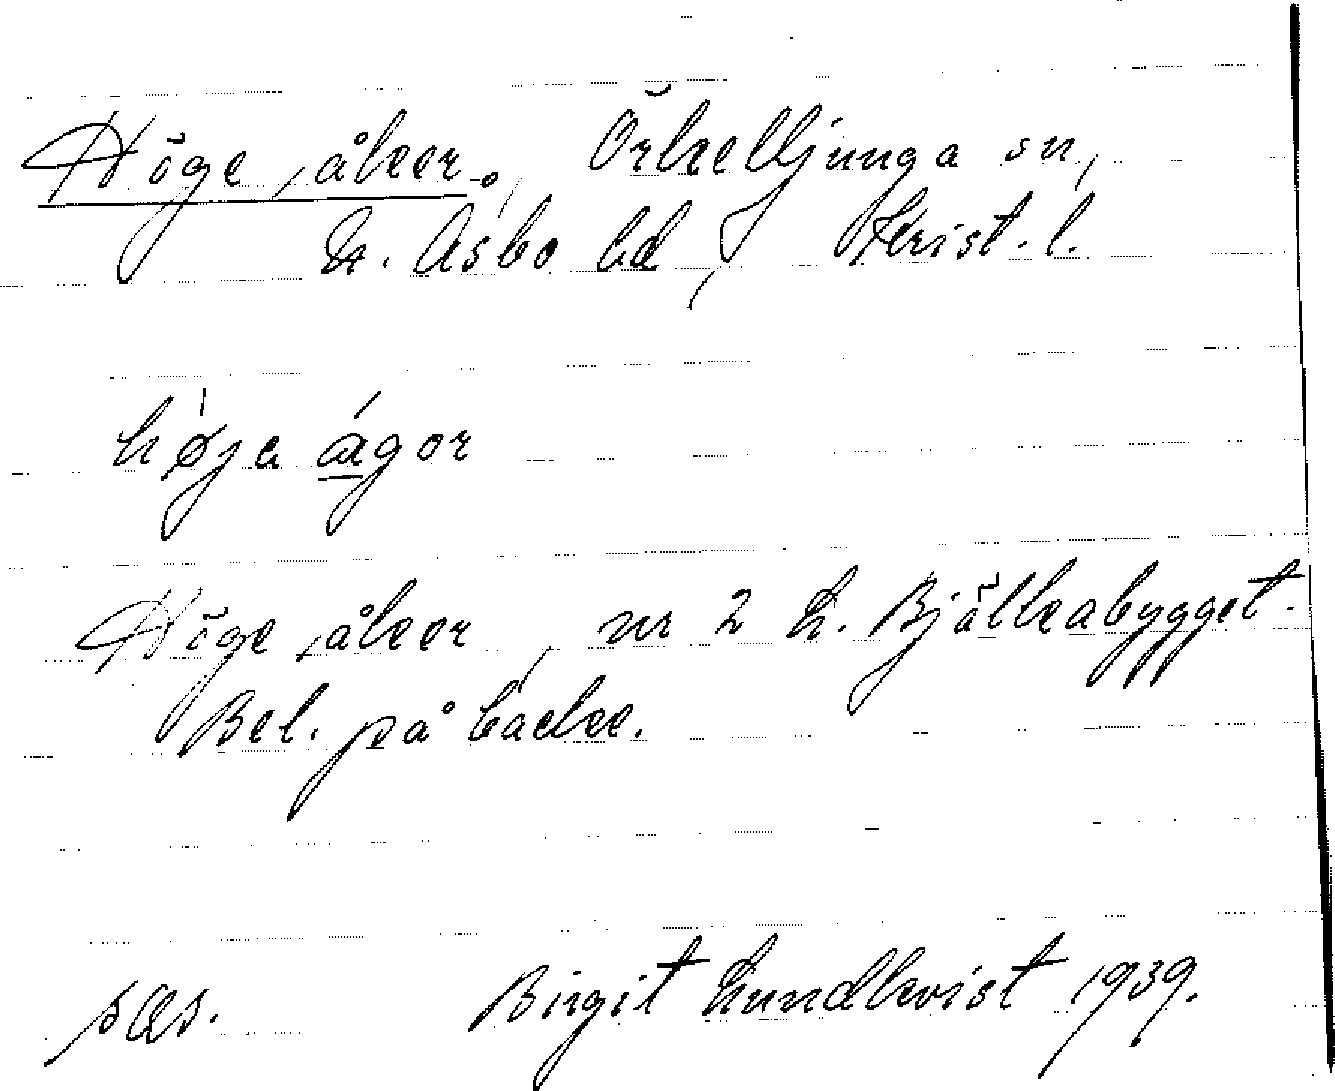 Höge ,åker, Örkelljunga sn,
N. Åsbo hd, Krist. l.
høje ágor
Höge ,åker, nr 2 L. Bjälkabygget.
Bel. på backe.
sas. Birgit Lundkvist 1939.